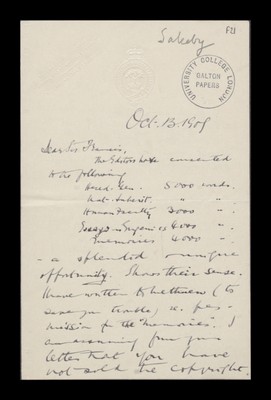 Saleeby
F21
UNIVERSITY COLLEGE LONDON
GALTON PAPERS
Oct. 13. 1909
Dear Sir Francis,
The Editors have consented
to as following
Hered. Gen. 5000 words.
Nat. Inherit. " " .
Human Faculty 3000 " .
Essays in Eugenics 4000 " .
Memories 4000 " .
- a splendid unique
opportunity. Shows their sense.
I have written to Methuen (to
save you trouble) re per-
mission for the Memories. I
am assuming from your
letter that you have
not sold the copyright.